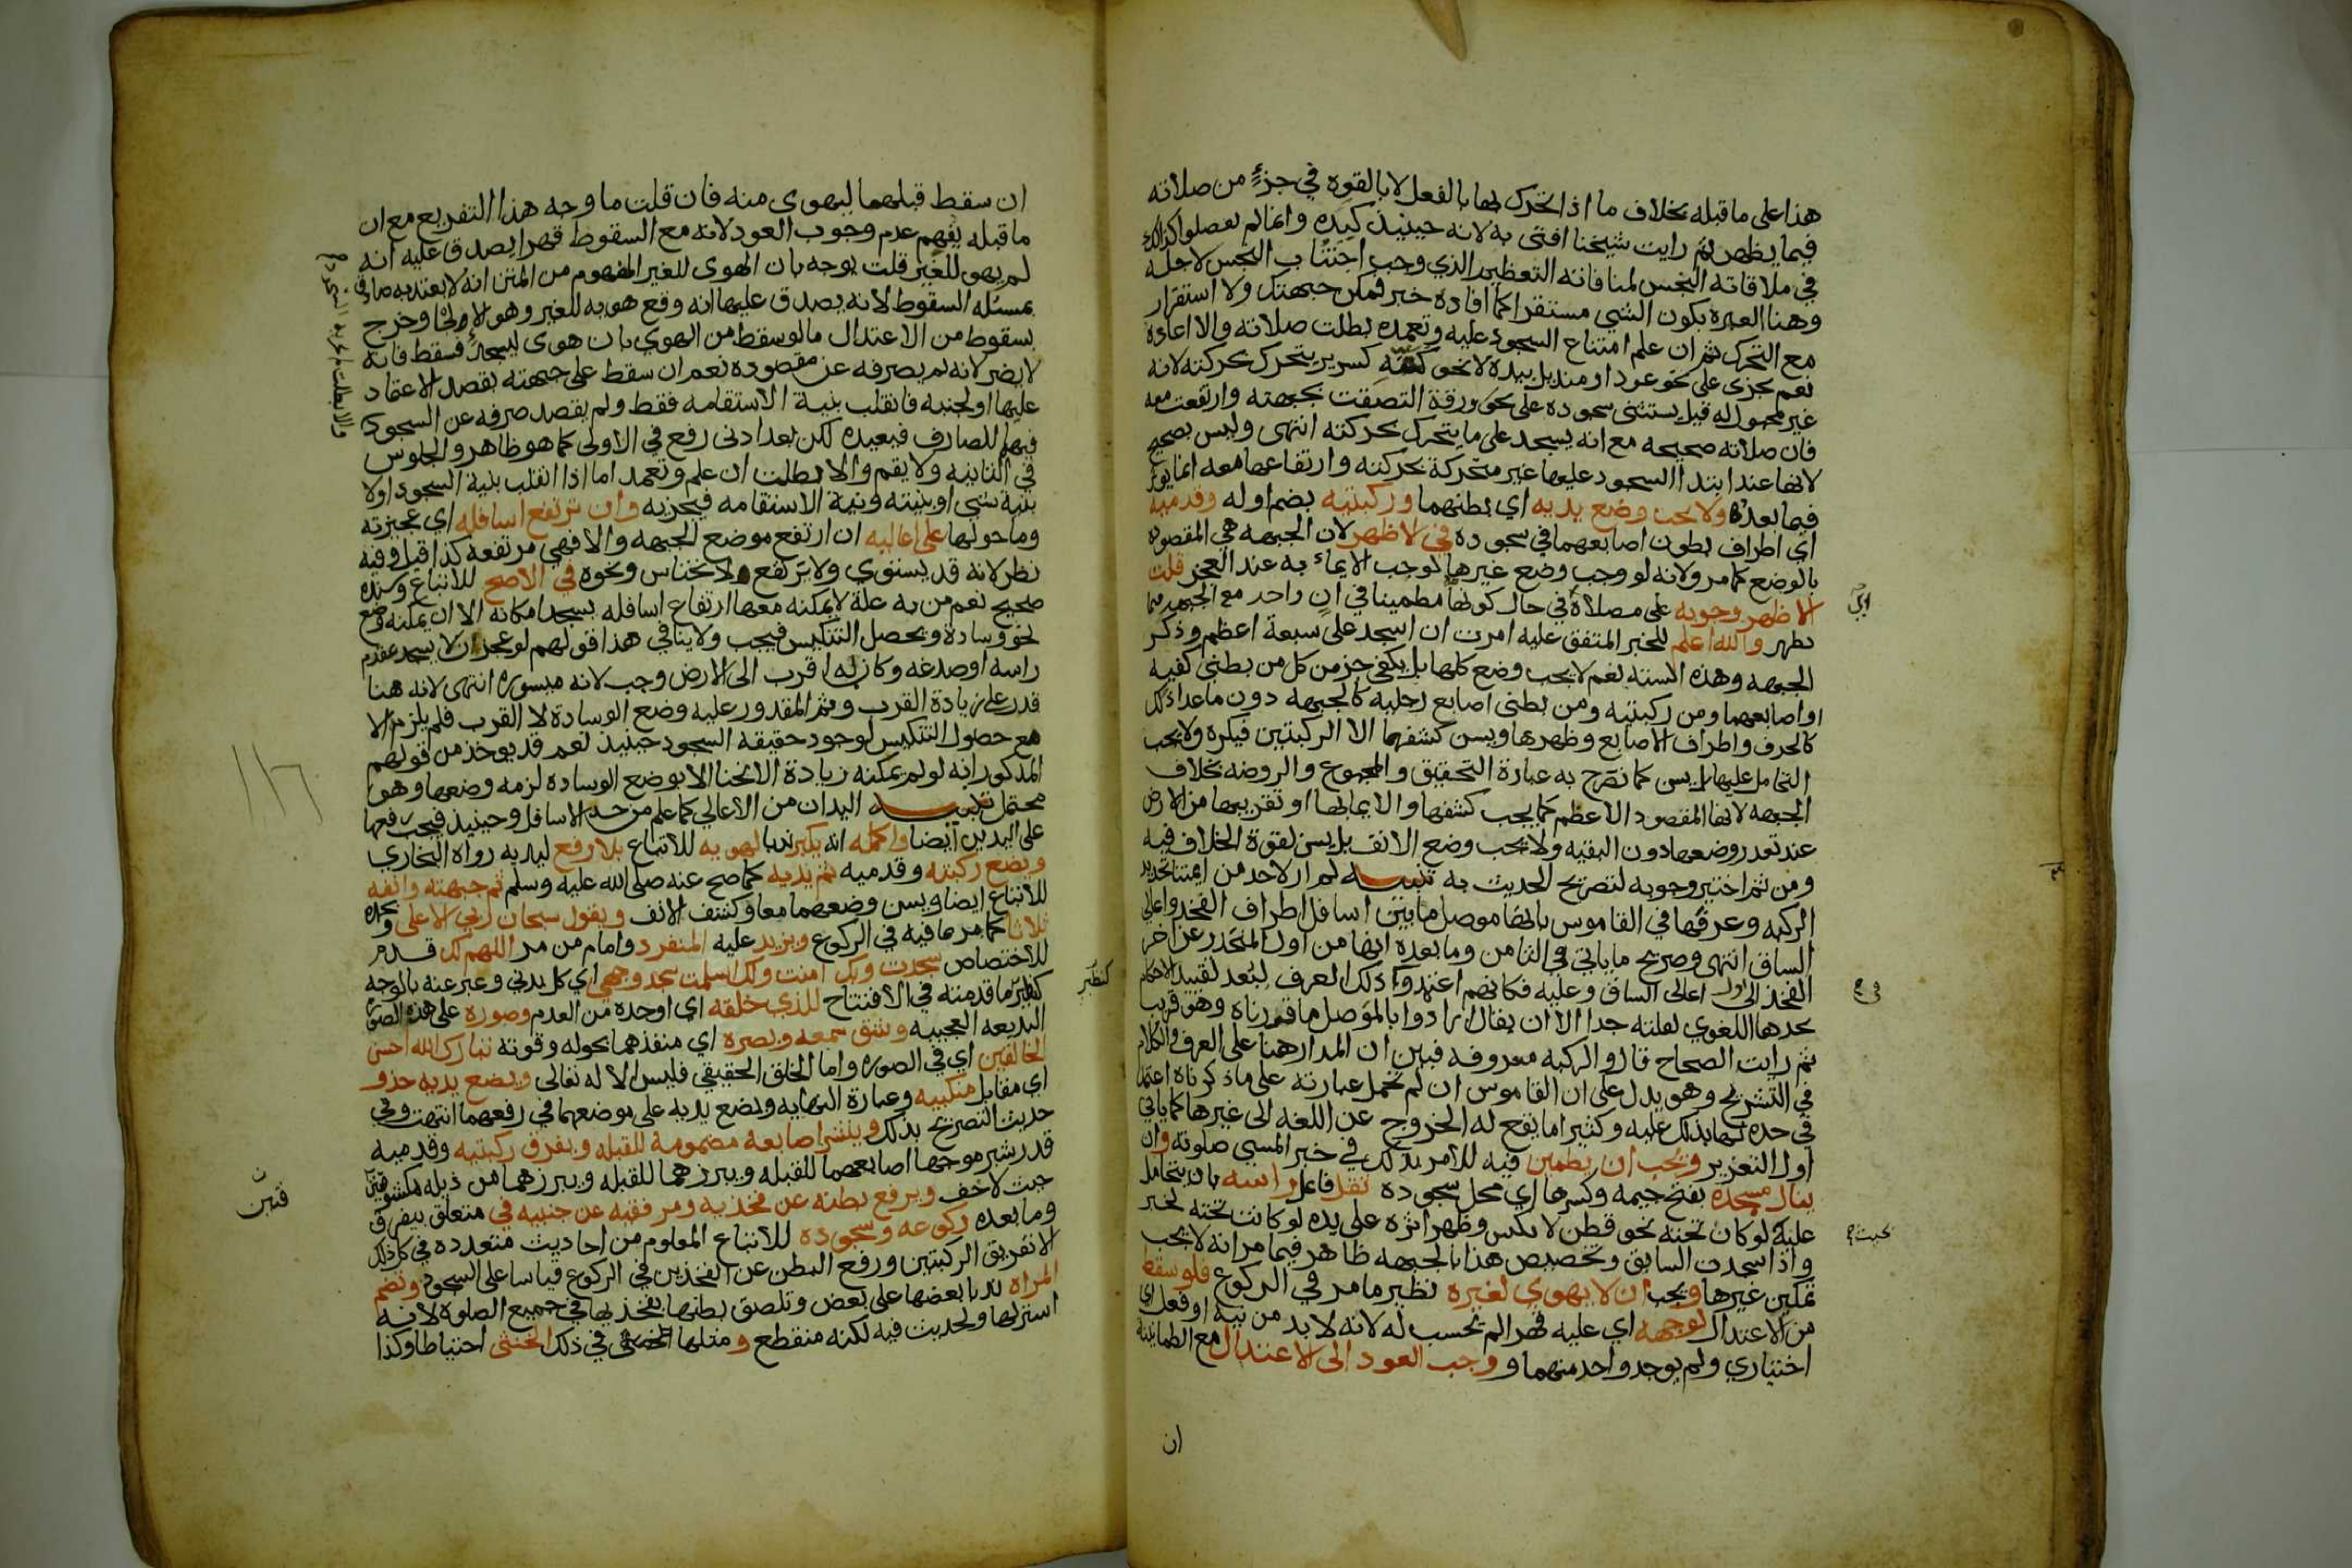 هذا على ما قبله بخلاف ما اذا تحرك بها بالفعل لا بالقوه في جزء من صلاته
فيما يظهر ثم رايت شيخنا افتى به لانه حينيذ كيده وانما لم يفصلوا كذلك
في ملاقاته النجس لمنافاته التعظيم الذي وجب اجتناب النجس لاجله
وهنا العبره بكون الشي مستقرا كما افاده خبر فمكن جبهتك ولا استقرار
مع التحرك ثم ان علم امتناع السجود عليه وتعمده بطلت صلاته والا اعاده
نعم يجزى على نحو عود او منديل بيده لا نحو كتفه كسرير يتحرك بحركته لانه
غير محمول له قيل يستثنى سجوده على نحو ورقة التصقت بجبهته وارتفعت معه
فان صلاته صحيحه مع انه يسجد على ما يتحرك بحركته انتهى وليس بصحيح
لانها عند ابتدا السجود عليها غير متحركة بحركته وارتفاعها معه انما يوثر
فيما بعده ولا يجب وضع يديه اي بطنهما وركبتيه بضم اوله وقدميه
اي اطراف بطون اصابعهما في سجوده في الاظهر لان الجبهه هي المقصوده
بالوضع كما مر ولانه لو وجب وضع غيرها لوجب الايماء به عند العجز قلت
الاظهر وجوبه على مصلاه في حال كونها مطمينا في ان واحد مع الجبهه فيما
يظهر والله اعلم للخبر المتفق عليه امرت ان اسجد على سبعة اعظم وذكر
الجبهه وهذه الستة نعم لا يجب وضع كلها بل يكفي جز من كل من بطني كفيه
او اصابعهما ومن ركبتيه ومن بطنى اصابع رجليه كالجبهه دون ما عدا ذلك
كالحرف واطراف الاصابع وظهرها ويسن كشفها الا الركبتين فيكره ولا يجب
التحامل عليها بل يسن كما تصرح به عبارة التحقيق والمجموع والروضه بخلاف
الجبهه لانها المقصود الاعظم كما يجب كشفها والايما بها او تقريبها من الارض
عند تعذر وضعها دون البقيه ولا يجب وضع الانف بل يسن لقوة الخلاف فيه
ومن ثم اختير وجوبه لتصريح الحديث به تنبيه لم ار لاحد من ايمتنا تحديد
الركبه وعرفها في القاموس بانها موصل ما بين اسافل اطراف الفخذ واعالي
الساق انتهى وصريح ما ياتي في الثامن وما بعده انها من اول المنحدر عن اخر
الفخذ الى اول اعالى الساق وعليه فكانهم اعتمدوا ذلك العرف لبعد تقييد الاحكام
بحدها اللغوي لقلته جدا الا ان يقال ارادوا بالموصل ما قررناه وهو قريب
ثم رايت الصحاح قال والركبه معروفه فبين ان المدار هنا على العرف والكلام
في التشريح وهو يدل على ان القاموس ان لم تحمل عبارته على ما ذكرناه اعتمد
في حده لها بذلك عليه وكثيرا ما يقع له الخروج عن اللغه الى غيرها كما ياتي
اول التعزير ويجب ان يطمين فيه للامر بذلك في خبر المسي صلوته وان
ينال مسجده بفتح جيمه وكسرها اي محل سجوده ثقل فاعل راسه بان يتحامل
عليه لو كان تحته نحو قطن لانكبس وظهر اثره على يده لو كانت تحته لخبر
واذا سجدت السابق وتخصيص هذا بالجبهه ظاهر فيما مر انه لا يجب
تمكين غيرها ويجب ان لا يهوي لغيره نظير ما مر في الركوع فلو سقط
من الاعتدال لوجهه اي عليه قهرا لم يحسب له لانه لا بد من نيه او فعل اي
اختياري ولم يوجد واحد منهما و ووجب العود الى الاعتدال مع الطمانينة
ان
ان سقط قبلهما ليهوى منه فان قلت ما وجه هذا التفريع مع ان
ما قبله يفهم عدم وجوب العود لانه مع السقوط قهرا يصدق عليه انه
لم يهو للغير قلت يوجه بان الهوى للغير المفهوم من المتن انه لا يعتد به صادق
بمسئله السقوط لانه يصدق عليها انه وقع هويه للغير وهو الالجا وخرج
بسقوط من الاعتدال ما لو سقط من الهوي بان هوى ليسجد فسقط فانه
لا يضر لانه لم يصرفه عن مقصوده نعم ان سقط على جبهته بقصد الاعتماد
عليها او لجنبه فانقلب بنية الاستقامه فقط ولم يقصد صرفه عن السجود
فيهما للصارف فيعيده لكن بعد ادنى رفع في الاولى كما هو ظاهر والجلوس
في الثانيه ولا يقم والا بطلت ان علم وتعمد اما اذا انقلب بنية السجود او لا
بنية شي او بنيته ونية الاستقامه فيجزيه وان ترتفع اسافله اي عجيزته
وما حولها على اعاليه ان ارتفع موضع الجبهه والا فهي مرتفعه كذا قيل وفيه
نظر لانه قد يستوي ولا ترتفع لانخناس ونحوه في الاصح للاتباع وسنده
صحيح نعم من به علة لا يمكنه معها ارتفاع اسافله يسجد امكانه الا ان يمكنه وضع
نحو وسادة ويحصل التنكيس فيجب ولا ينافي هذا قولهم لو عجز ان لا يسجد بمقدم
راسه او صدغه وكان به اقرب الى الارض وجب لانه ميسوره انتهى لانه هنا
قدر على زيادة القرب وثم المقدور عليه وضع الوسادة لا القرب فلم يلزم الا
مع حصول التنكيس لوجود حقيقه السجود حينيذ نعم قد يوخذ من قولهم
المذكور انه لو لم يمكنه زيادة الانحنا الا بوضع الوساده لزمه وضعها وهو
محتمل تنبيه اليدان من الاعالي كما علم من حد الاسافل وحينيذ فيجب رفعها
على اليدين ايضا واكمله انه يكبر ندبا لهويه للاتباع بلا رفع ليديه رواه البخاري
ويضع ركبته وقدميه ثم يديه كما صح عنه صلى الله عليه وسلم ثم جبهته وانفه
للاتباع ايضا ويسن وضعهما معا وكشف الانف ويقول سبحان ربي الاعلى وبحمده
ثلاثا كما مر ما فيه في الركوع ويزيد عليه المنفرد وامام من مر اللهم لك قدم
للاختصاص سجدت وبك امنت ولك اسلمت سجد وجهي اي كل بدني وعبر عنه بالوجه
كنظير ما قدمته في الافتتاح للذي خلقه اي اوجده من العدم وصوره على هذه الصوره
البديعه العجيبه وشق سمعه وبصره اي منفذهما بحوله وقوته تبارك الله احسن
الخالقين اي في الصوره واما الخلق الحقيقي فليس الا له تعالى ويضع يديه حذو
اي مقابل منكبيه وعبارة النهايه ويضع يديه على موضعهما في رفعهما انتهت وفي
حديث التصريح بذلك وينشر اصابعه مضمومة للقبله ويفرق ركبتيه وقدميه
قدر شبر موجها اصابعهما للقبله ويبرزهما للقبله ويبرزهما من ذيله مكشوفتين
حيث لا خف ويرفع بطنه عن فخذيه ومرفقيه عن جنبيه في متعلق بيفرق
وما بعده ركوعه وسجوده للاتباع المعلوم من احاديث متعدده في كل ذلك
الا تفريق الركبتين ورفع البطن عن الفخذين في الركوع فقياسا على السجود وتضم
المراه ندبا بعضها على بعض وتلصق بطنها بفخذيها في جميع الصلوة لانه
استر لها ولحديث فيه لكنه منقطع ومثلها في ذلك الخنثى احتياطا وكذا
كنظير
١١٦